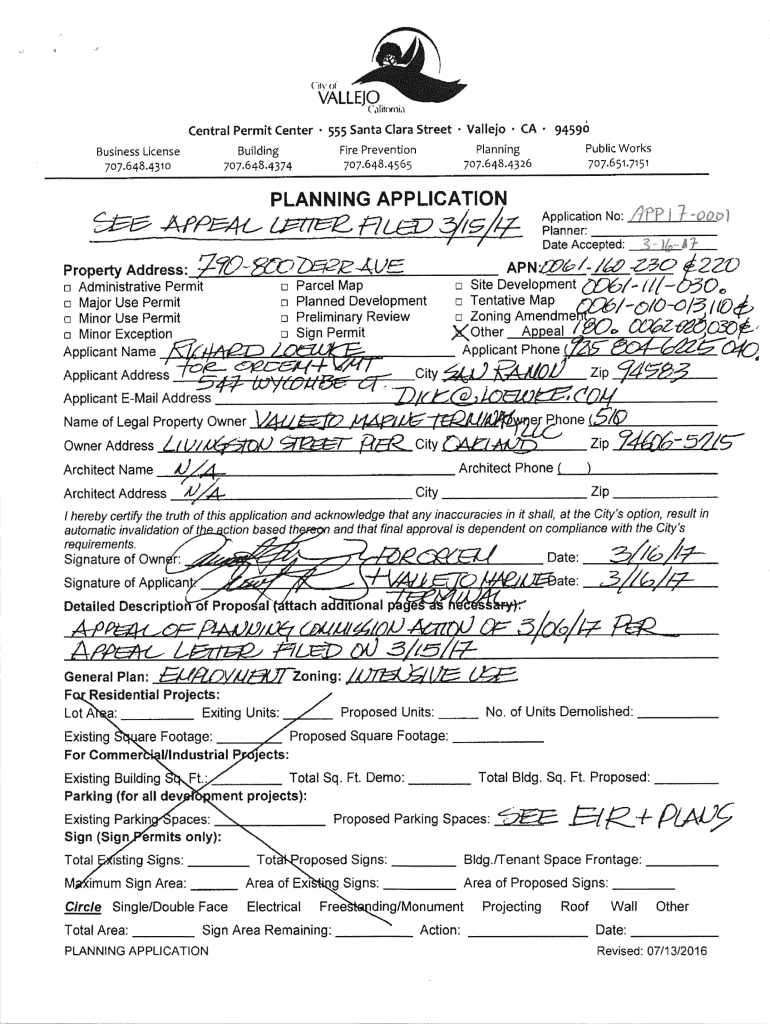 City of
VALLEJO
California
Central Permit Center · 555 Santa Clara Street · Vallejo · CA · 94590
Business License Building Fire Prevention Planning Public Works
707.648.4310 707.648.4374 707.648.4565 707.648.4326 707.651.7151
PLANNING APPLICATION
SEE APPEAL LETTER FILED 3/15/17
Application No: APP17-0001
Planner:
Date Accepted: 3-16-17
Property Address: 790-800 DERR AVE APN: 0061-160-230 & 220
□ Administrative Permit □ Parcel Map □ Site Development 0061-111-030.
□ Major Use Permit □ Planned Development □ Tentative Map 0061-010-013, 110 &
□ Minor Use Permit □ Preliminary Review □ Zoning Amendment
□ Minor Exception □ Sign Permit X Other Appeal 180. 0062-020,030 &
Applicant Name RICHARD LOEWKE Applicant Phone (925 804-6225 040.
FOR ORCEM + VMT
Applicant Address 547 WYCOMBE CT. City SAN RAMON Zip 94583
Applicant E-Mail Address DICK@LOEWKE.COM
Name of Legal Property Owner VALLEJO MARINE TERMINAL LLC Owner Phone (510
Owner Address LIVINGSTON STREET PIER City OAKLAND Zip 94606-5215
Architect Name N/A Architect Phone ( )
Architect Address N/A City Zip
I hereby certify the truth of this application and acknowledge that any inaccuracies in it shall, at the City's option, result in
automatic invalidation of the action based thereon and that final approval is dependent on compliance with the City's
requirements.
Signature of Owner: FOR ORCEM Date: 3/16/17
Signature of Applicant + VALLEJO MARINE TERMINAL Date: 3/16/17
Detailed Description of Proposal (attach additional pages as necessary):
APPEAL OF PLANNING COMMISSION ACTION OF 3/06/17 PER
APPEAL LETTER FILED ON 3/15/17
General Plan: EMPLOYMENT Zoning: INTENSIVE USE
For Residential Projects:
Lot Area: Exiting Units: Proposed Units: No. of Units Demolished:
Existing Square Footage: Proposed Square Footage:
For Commercial/Industrial Projects:
Existing Building Sq. Ft.: Total Sq. Ft. Demo: Total Bldg. Sq. Ft. Proposed:
Parking (for all development projects):
Existing Parking Spaces: Proposed Parking Spaces: SEE EIR + PLANS
Sign (Sign Permits only):
Total Existing Signs: Total Proposed Signs: Bldg./Tenant Space Frontage:
Maximum Sign Area: Area of Existing Signs: Area of Proposed Signs:
Circle Single/Double Face Electrical Freestanding/Monument Projecting Roof Wall Other
Total Area: Sign Area Remaining: Action: Date:
PLANNING APPLICATION Revised: 07/13/2016